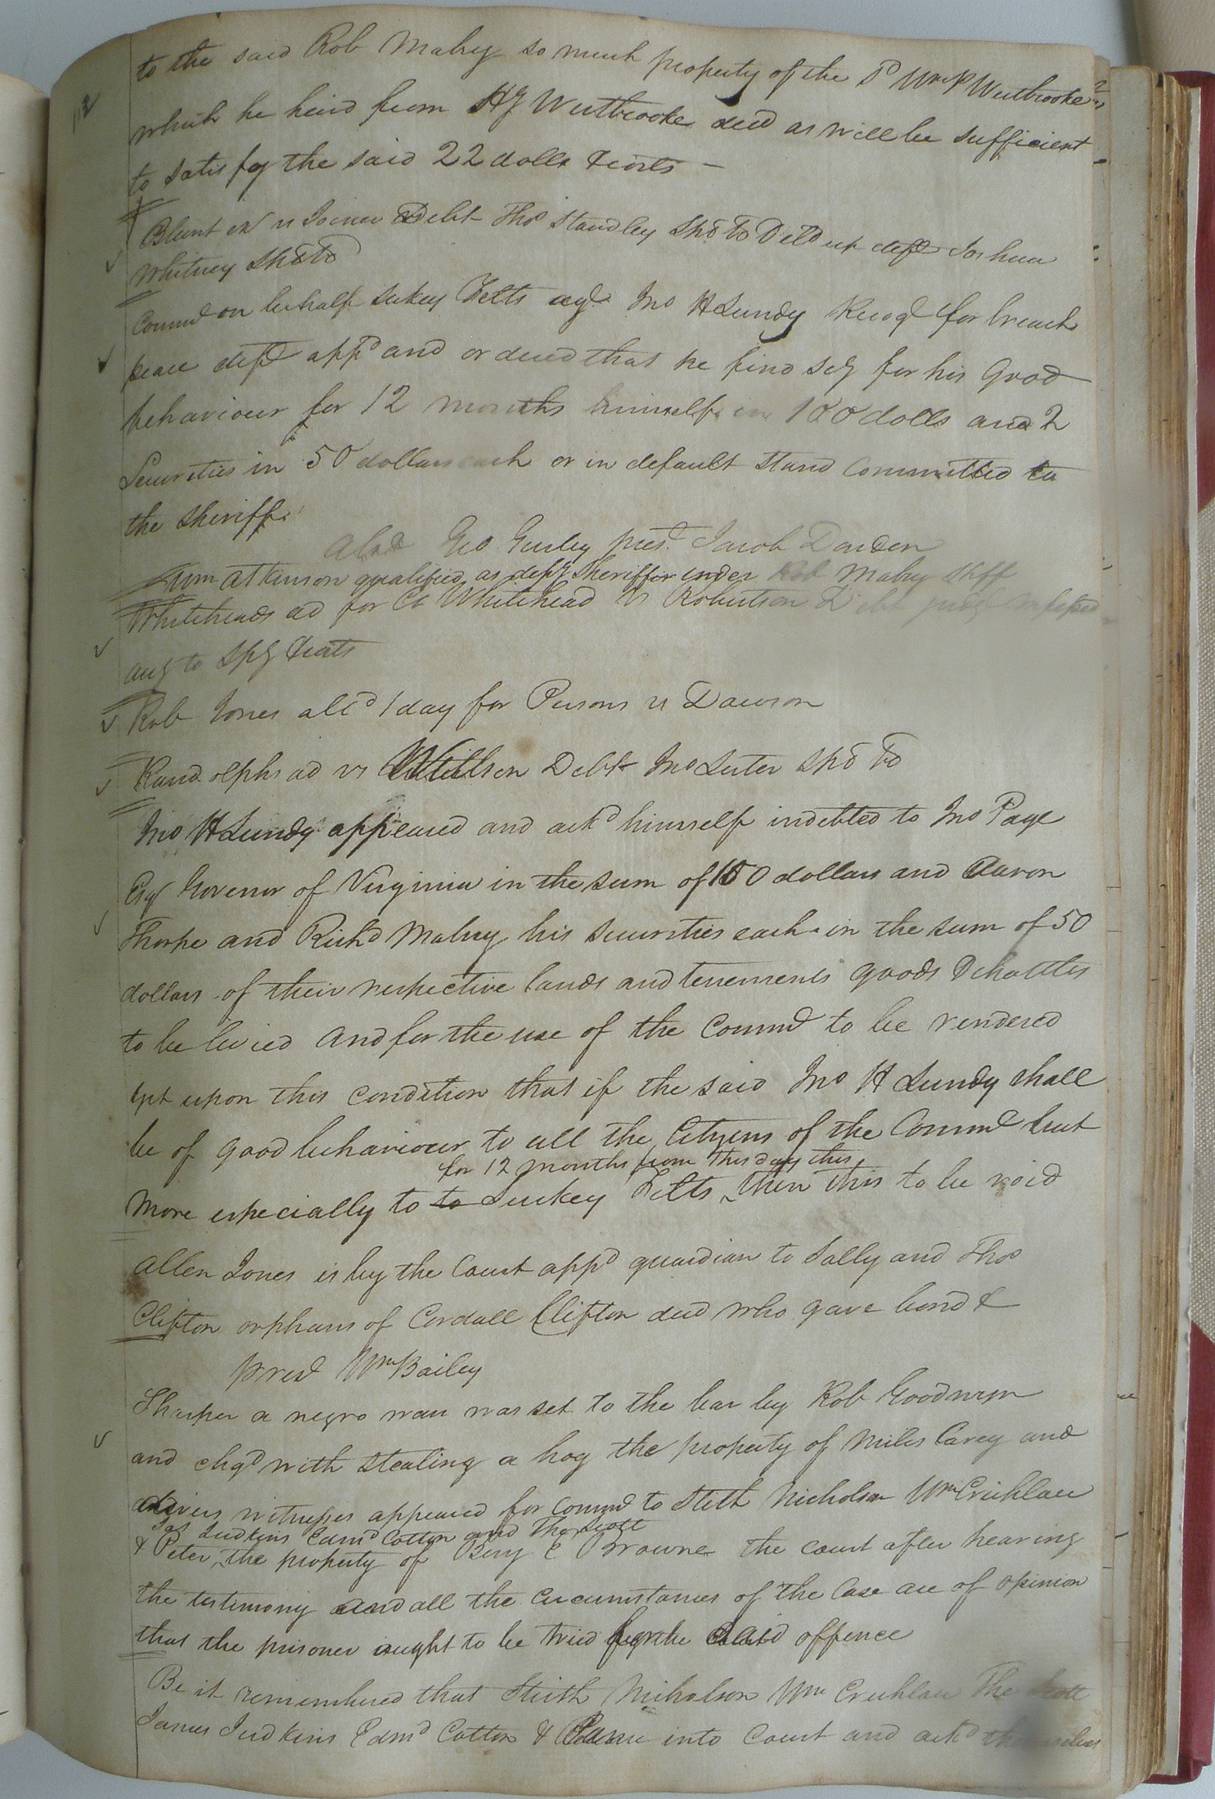 to the said Rob Mabry so much property of the Sd Wm P Westbrooke
which he heird from HJ Westbrooke decd as will be sufficient
to satisfy the said 22 dolls & costs –
Blunt exr vs Joiner Debt Thos Standley Spd to Deld up deft Joshua
Whitney Spd to
Commd on behalf Sukey Felts agt Jno H Lundy Recogd for breach
peace deft appd and ordered that he find Scy for his Good
behaviour for 12 months himself in 100 dolls and 2
Securities in 50 dollars each or in default stand Committed to
the Sheriff
Absd Geo Gurley prest Jacob Darden
Wm Atkinson qualified as depy Sheriff under Rob Mabry Shff
Whiteheads ad for C Whitehead vs Robertson Debt judgt confessed
acc to Spy & costs
Rob Jones alld 1 day for Persons vs Dawson
Randolphs ad vs Willson Debt Jno Luter Spd to
Jno H Lundy appeared and ackd himself indebted to Jno Page
Esqr Governor of Virginia in the sum of 100 dollars and Aaron
Thorpe and Richd Mabry his Securities each in the sum of 50
dollars of their respective lands and tenements goods & chattles
to be levied and for the use of the Commd to be rendered
yet upon this condition that if the said Jno H Lundy shall
be of good behaviour to all the Citizens of the Commd but
for 12 months from this day this
more especially to to Suckey Felts then this to be void
Allen Jones is by the Court appd guardian to Sally and Thos
Clifton orphans of Cordall Clifton decd who gave bond &
prest Wm Bailey
Sharper a negro man was set to the bar by Rob Goodwyn
and chgd with stealing a hog the property of Miles Carey and
divers witnesses appeared for Commd to Stith Nicholson Wm Crichlow
Jas Judkins Edmd Cotton and Thos Scott
& Peter the property of Benj C Browne the Court after hearing
the testimony and all the circumstances of the Case are of opinion
that the prisoner ought to be tried for the said offence
Be it remembered that Stith Nicholson Wm Crichlow Thos Scott
James Judkins Edmd Cotton & came into Court and ackd themselves